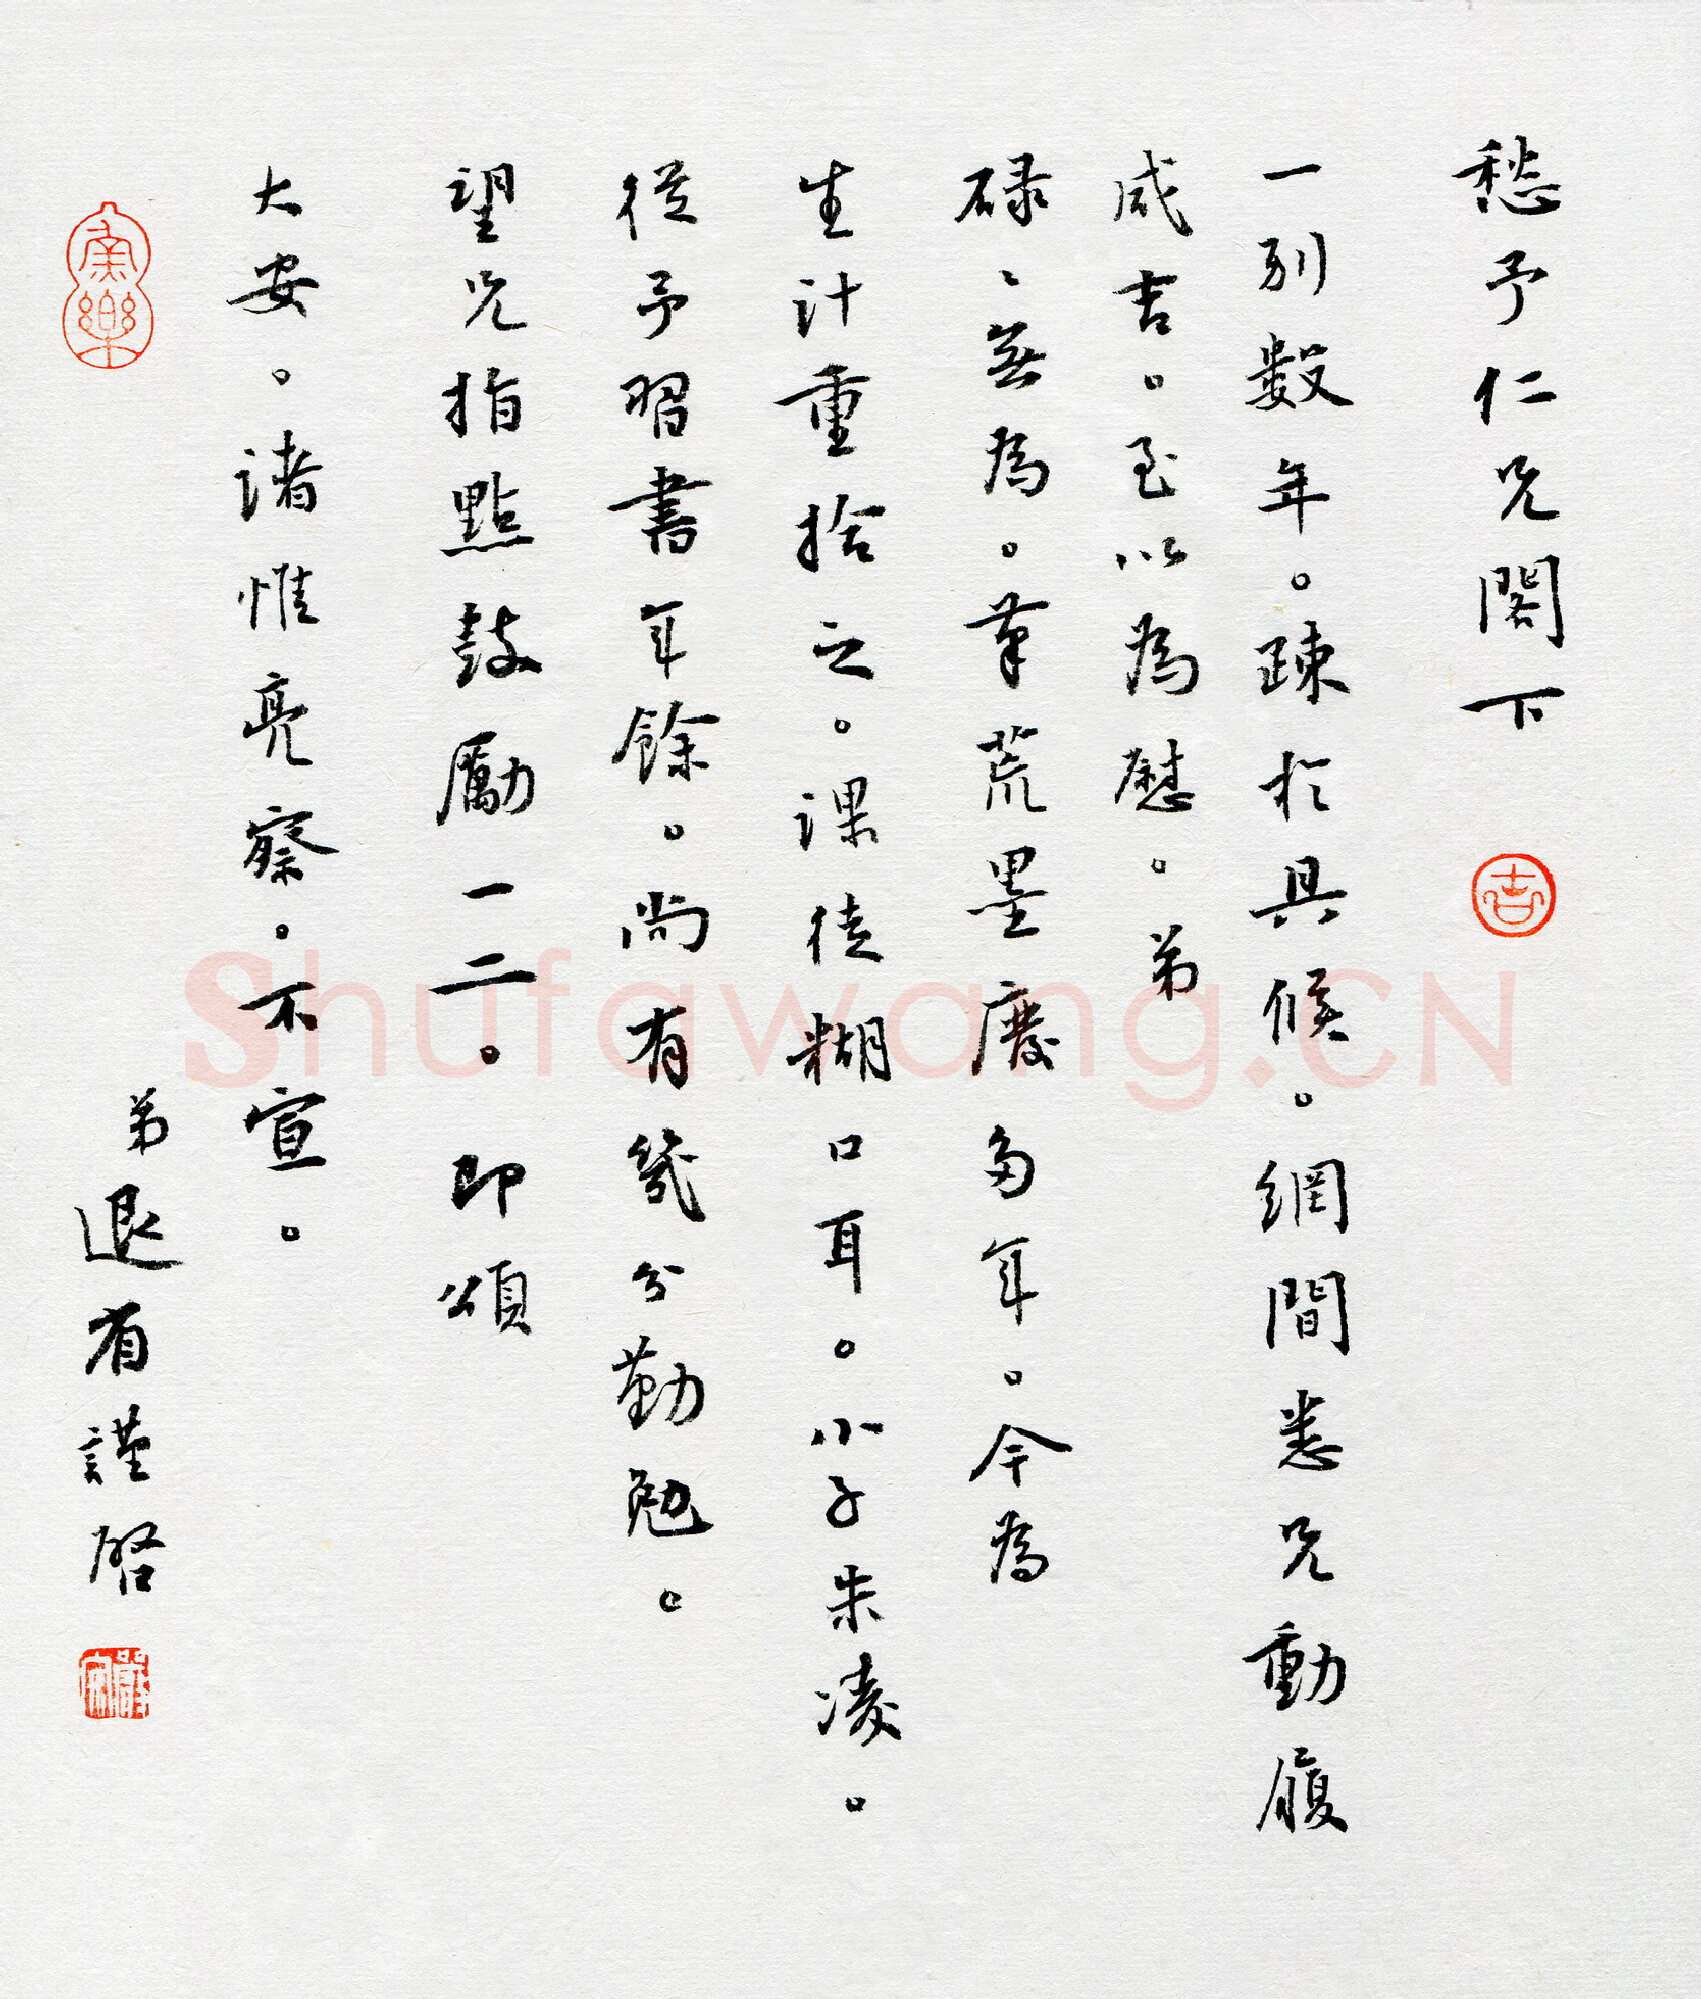 愁予仁兄閣下
吉
一別数年。疎於具候。網間悉兄動履
咸吉。至以為慰。弟
碌〻無為。筆荒墨廢多年。今為
生計重捨之。課徒糊口耳。小子朱凌。
從予習書年餘。尚有幾分勤勉。
望兄指點鼓勵一二。即頌
大安。諸惟亮察。不宣。
弟退省謹啓
魚樂
Shufawang.CN